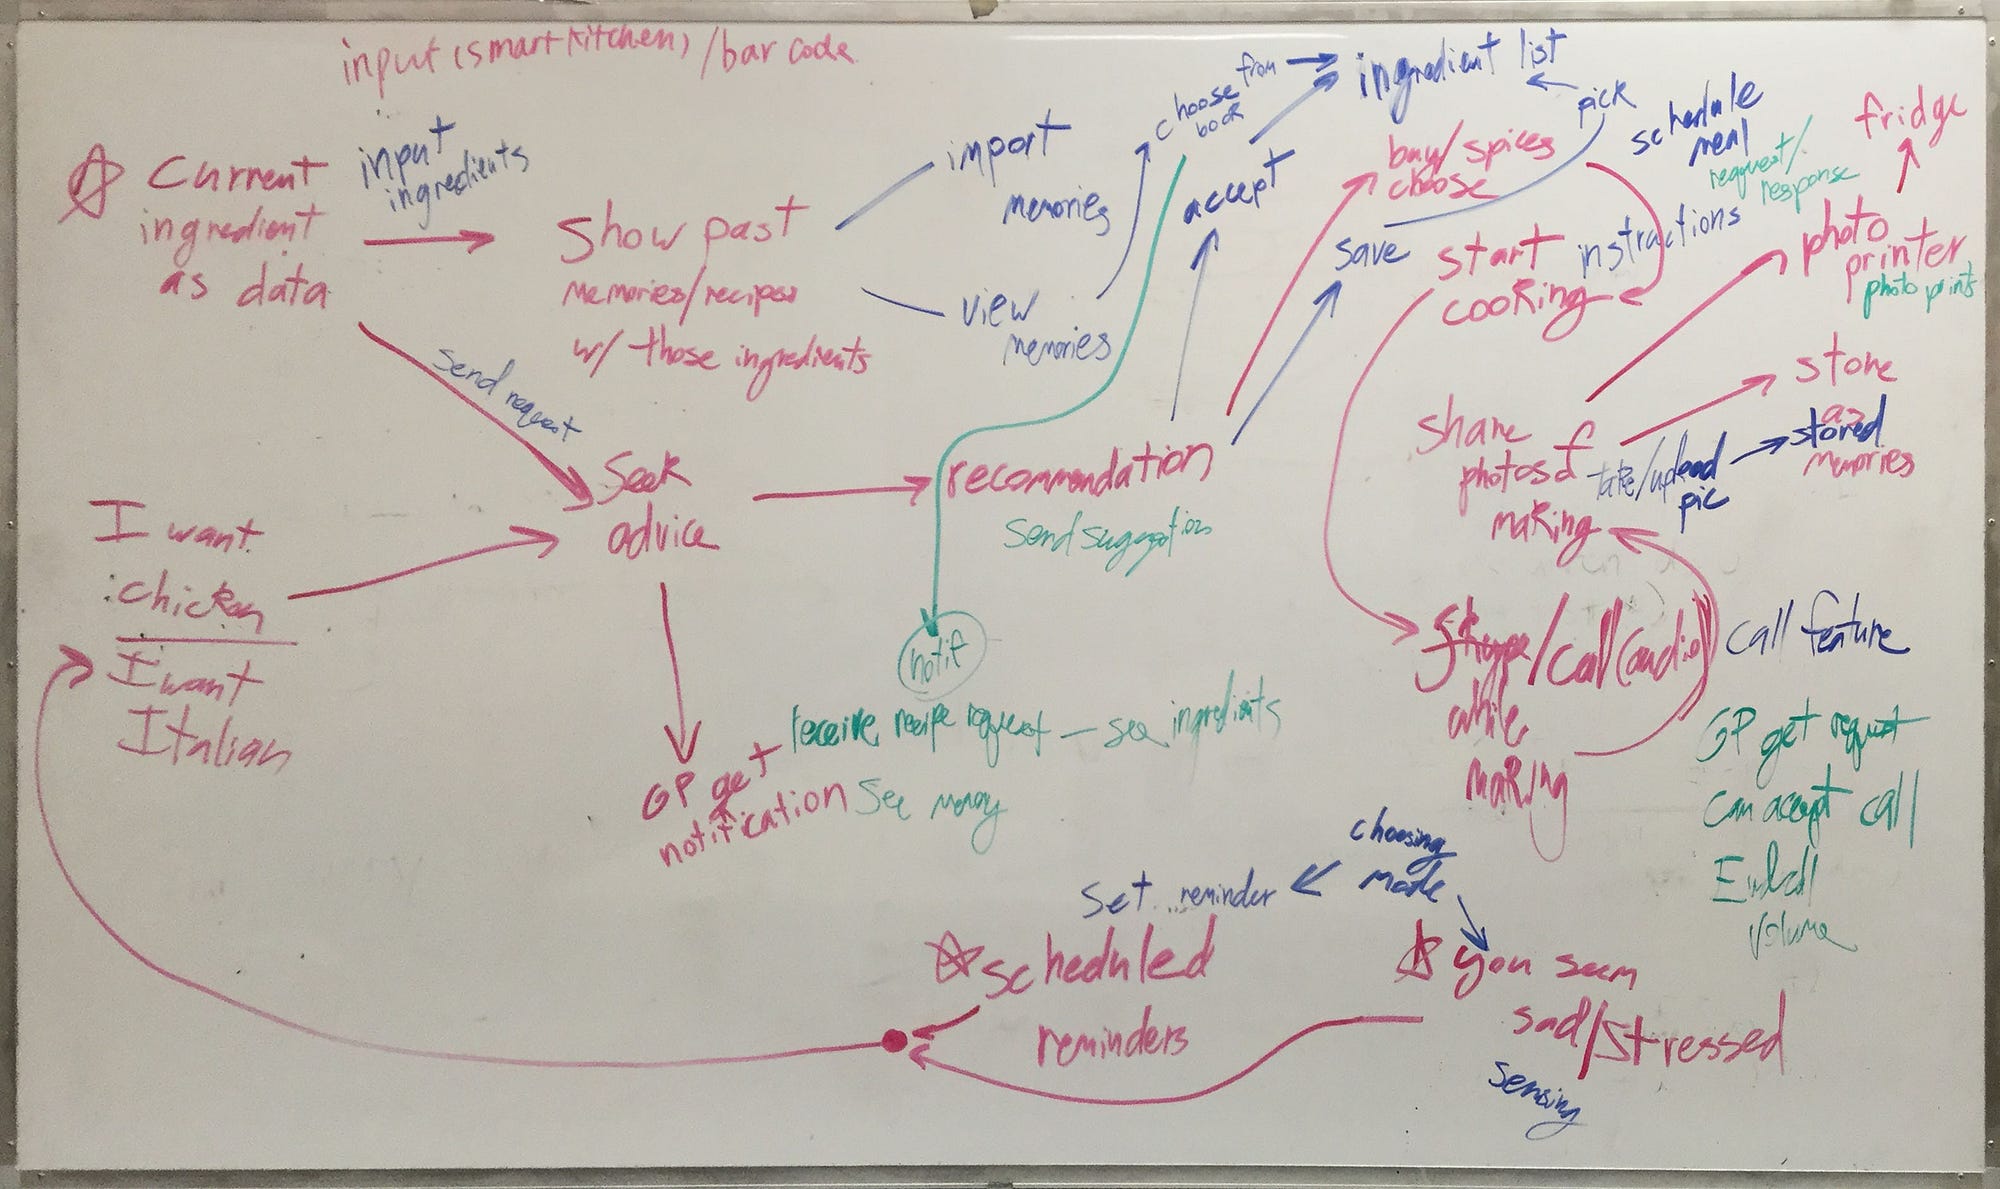 input (smart kitchen) / bar code
Current
ingredient
as data
input
ingredients
Show past
memories/recipes
w/ those ingredients
import
memories
view
memories
choose from
book
ingredient list
accept
pick
buy/spices
choose
schedule
meal
request/
response
fridge
save
start
cooking
instractions
photo
printer
photo prints
send request
Seek
advice
recommendation
send suggestion
share
photos of
making
take/upload
pic
store
as
stored
memories
I want
chicken
I want
Italian
notif
receive recipe request — see ingredients
GP get
notification
see
/call (audio)
while
making
call feature
GP get request
can accept call
End call
volume
choosing
mode
set reminder
scheduled
reminders
you seem
sad/stressed
sensing